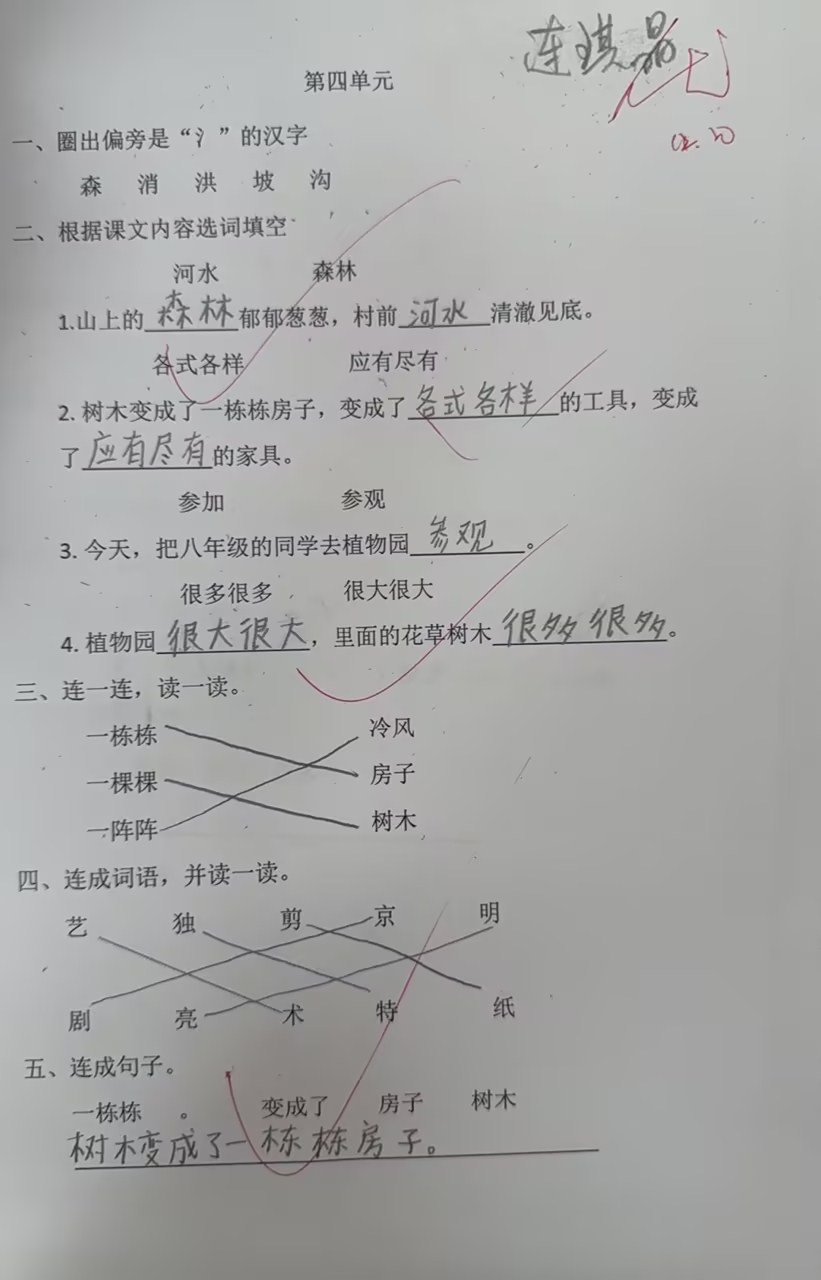 连琪
第四单元
一、圈出偏旁是“氵”的汉字
森 消 洪 坡 沟
二、根据课文内容选词填空
河水 森林
1.山上的森林郁郁葱葱，村前河水清澈见底。
各式各样 应有尽有
2. 树木变成了一栋栋房子，变成了各式各样的工具，变成
了应有尽有的家具。
参加 参观
3. 今天，把八年级的同学去植物园参观。
很多很多 很大很大
4. 植物园很大很大，里面的花草树木很多很多。
三、连一连，读一读。
一栋栋 冷风
一棵棵 房子
一阵阵 树木
四、连成词语，并读一读。
艺 独 剪 京 明
剧 亮 术 特 纸
五、连成句子。
一栋栋 。 变成了 房子 树木
树木变成了一栋栋房子。